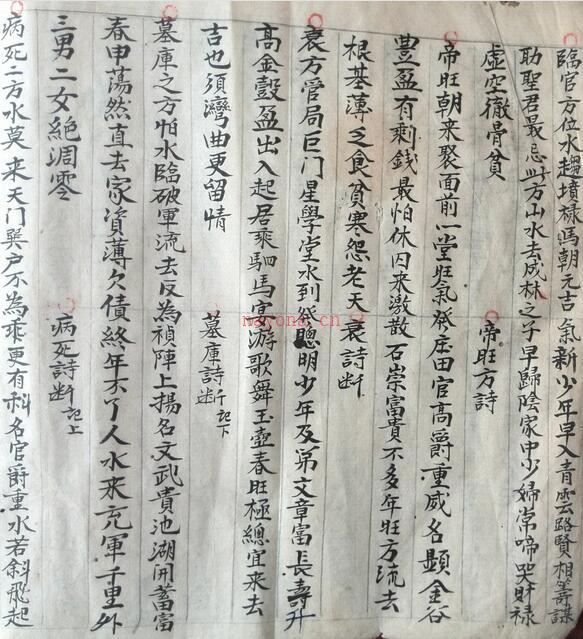 臨官方位水趨墳禄馬朝元吉氣新少年早入青雲路賢相籌謀
助聖君最忌此方山水去成林之子早歸陰家中少婦常啼哭財禄
虛空徹骨貧
帝旺方詩
帝旺朝来聚面前一堂旺氣發庄田官高爵重威名顯金谷
豐盈有剩錢最怕休囚来激散石崇富貴不多年旺方流去
根基薄乏食貧寒怨老天
衰詩断
衰方管局巨门星學堂水到發聰明少年及第文章富長壽升
高金穀盈出入起居乘駟馬宴游歌舞玉壺春旺極總宜来去
吉也須灣曲更留情
墓庫詩断記下
墓庫之方怕水臨破軍流去反為禎陣上揚名文武貴池湖開蓄富
春申蕩然直去家資薄欠債終年不了人水来充軍千里外
三男二女絕凋零
病死詩断記上
病死二方水莫来天门巽户不為乖更有科名官爵重水若斜飛起
nayona.cn